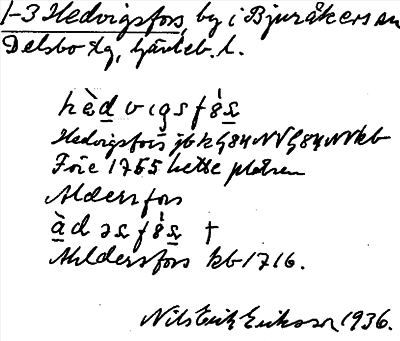 1-3 Hedvigsfors, by i Bjuråkers sn
Delsbo tg, Gävleb. l.
Hedvigsfors jbk G84NV G84NV kb
Före 1755 hette platsen
Aldersfors
Ahldersfors kb 1716.
Nils Erik Eriksson 1936.